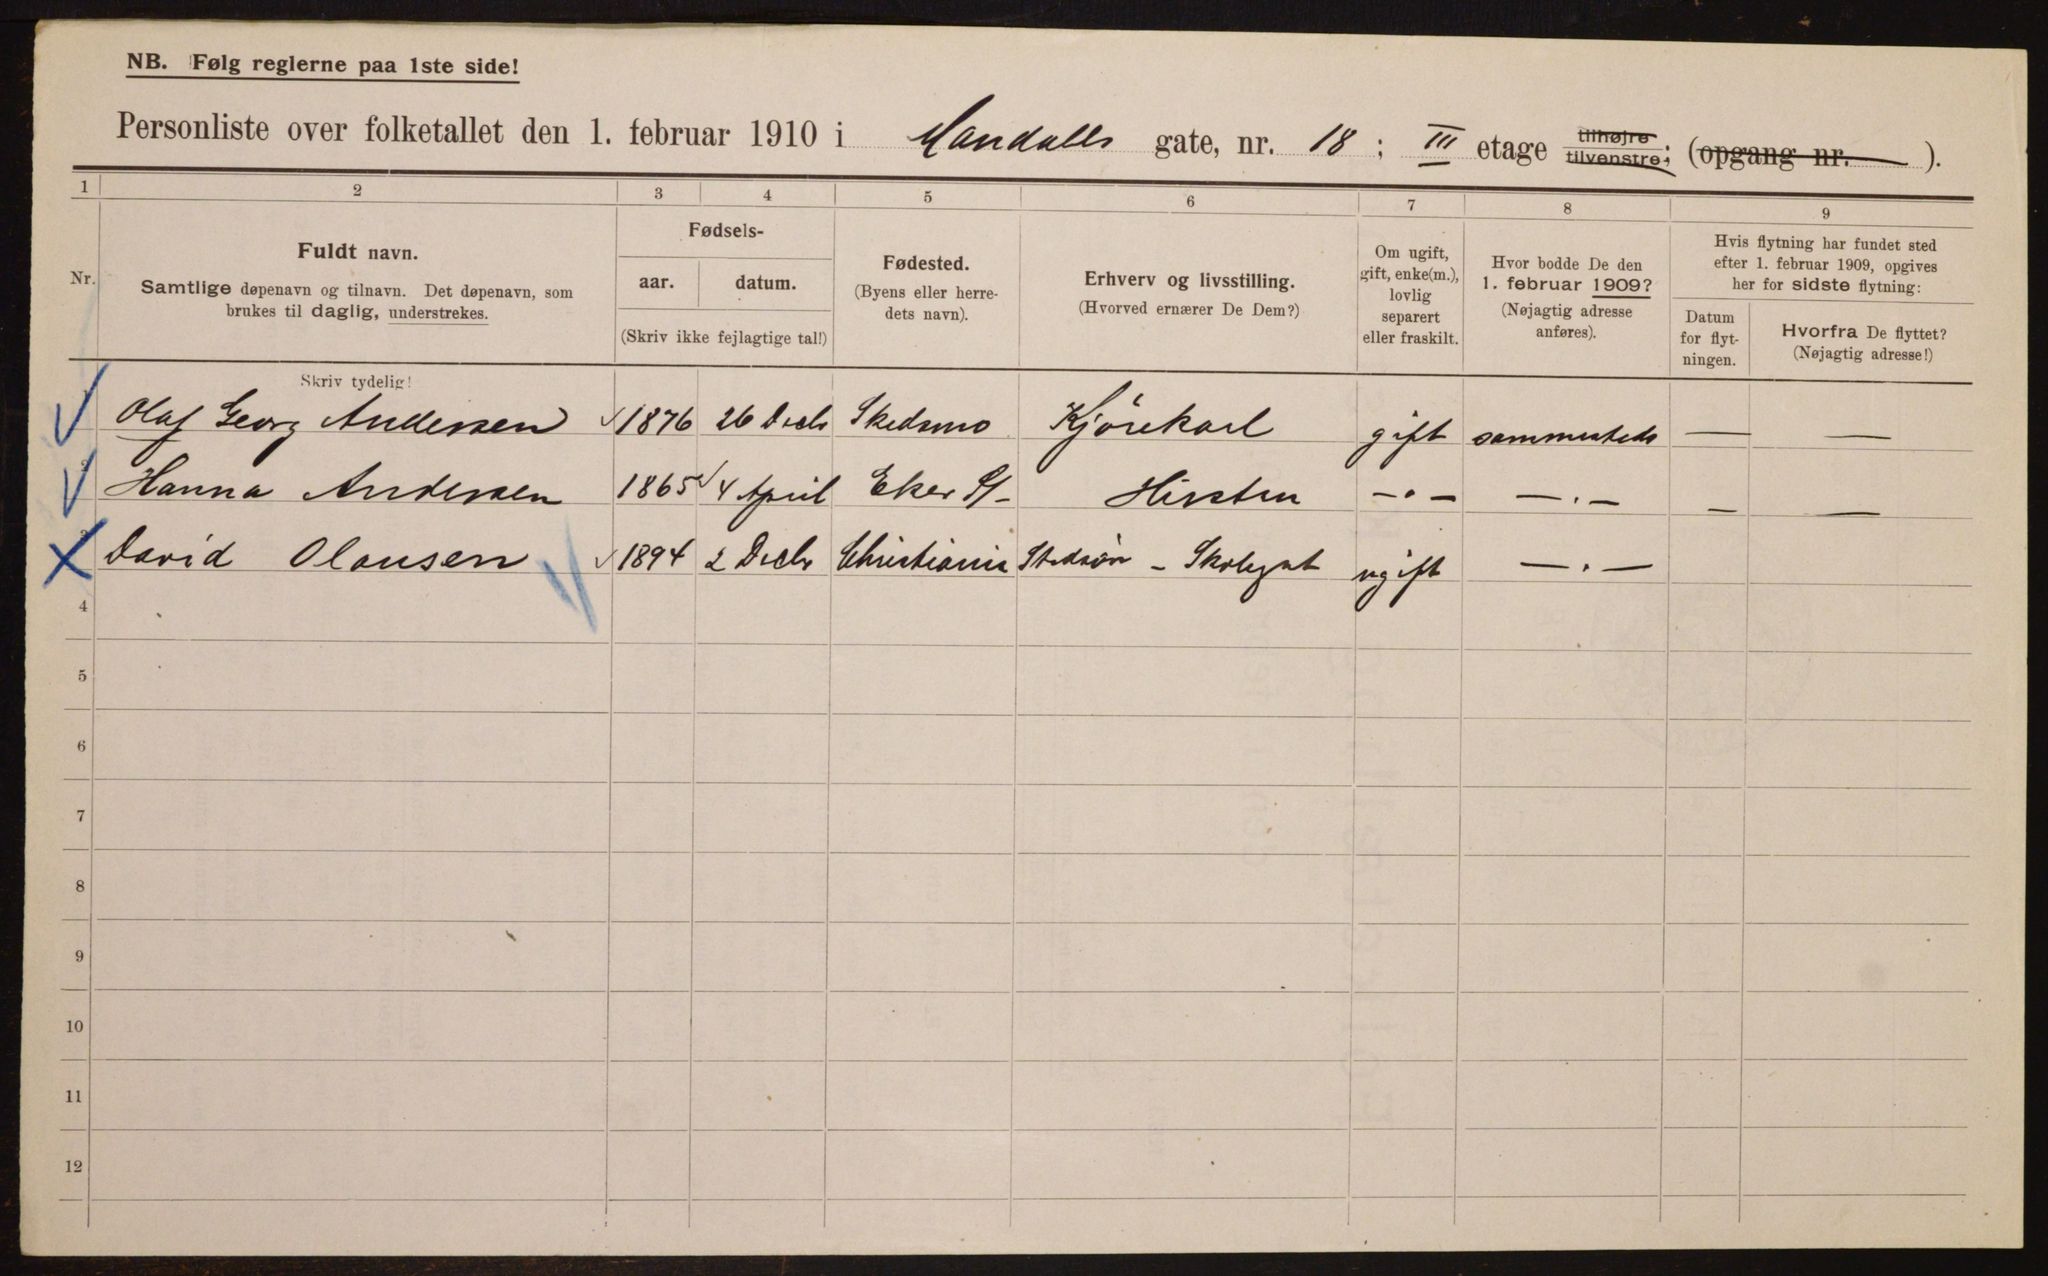 NB. Følg reglerne paa 1ste side!
Personliste over folketallet den 1. februar 1910 i Mandalls gate, nr. 18 ; III etage tilhøjre tilvenstre; (opgang nr. ).
1 2 3 4 5 6 7 8 9
Nr.
Fuldt navn.
Samtlige døpenavn og tilnavn. Det døpenavn, som
brukes til daglig, understrekes.
Skriv tydelig!
Fødsels-
aar. datum.
(Skriv ikke fejlagtige tal!)
Fødested.
(Byens eller herre-
dets navn).
Erhverv og livsstilling.
(Hvorved ernærer De Dem?)
Om ugift,
gift, enke(m.),
lovlig
separert
eller fraskilt.
Hvor bodde De den
1. februar 1909?
(Nøjagtig adresse
anføres).
Hvis flytning har fundet sted
efter 1. februar 1909, opgives
her for sidste flytning:
Datum
for flyt-
ningen.
Hvorfra De flyttet?
(Nøjagtig adresse!)
Olaf Georg Andersen 1876 26 Decbr Skedsmo Kjörekarl gift sammesteds — —
2 Hanna Andersen 1865 4 April Eker Hustru — . — — . — — —
3 David Olausen 1894 2 Decbr Christiania Stedsön – Skolegut ugift — . —
4
5
6
7
8
9
10
11
12